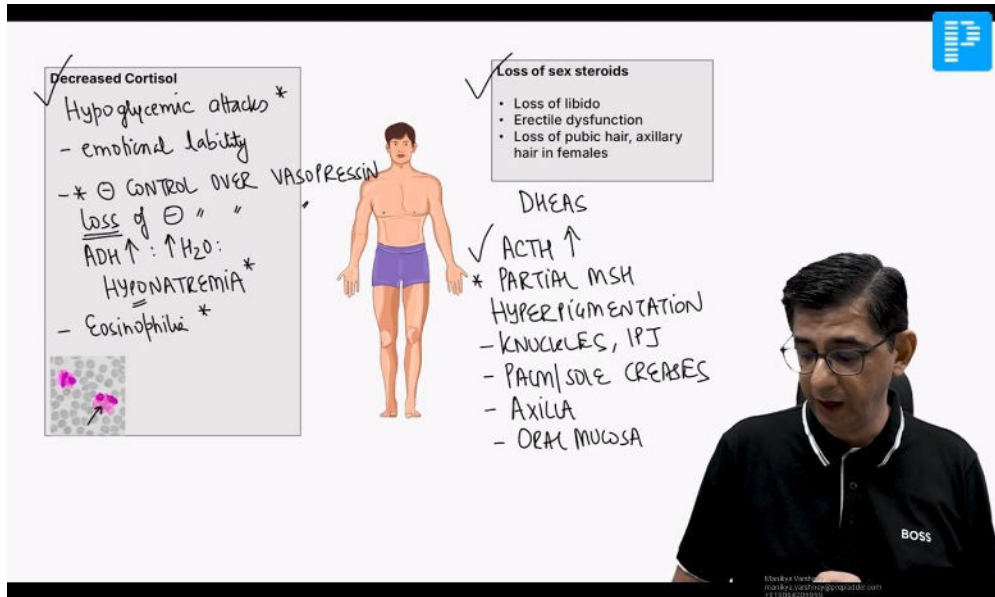 Decreased Cortisol
Hypoglycemic attacks *
- emotional lability
- * ⊖ CONTROL OVER VASOPRESSIN
Loss of ⊖ " "
ADH ↑ : ↑ H₂O :
HYPONATREMIA *
- Eosinophilia *
Loss of sex steroids
• Loss of libido
• Erectile dysfunction
• Loss of pubic hair, axillary
hair in females
DHEAS
✓ ACTH ↑
* PARTIAL MSH
HYPERPIGMENTATION
- KNUCKLES, IPJ
- PALM/SOLE CREASES
- AXILLA
- ORAL MUCOSA
BOSS
manikya.varshney@prepladder.com